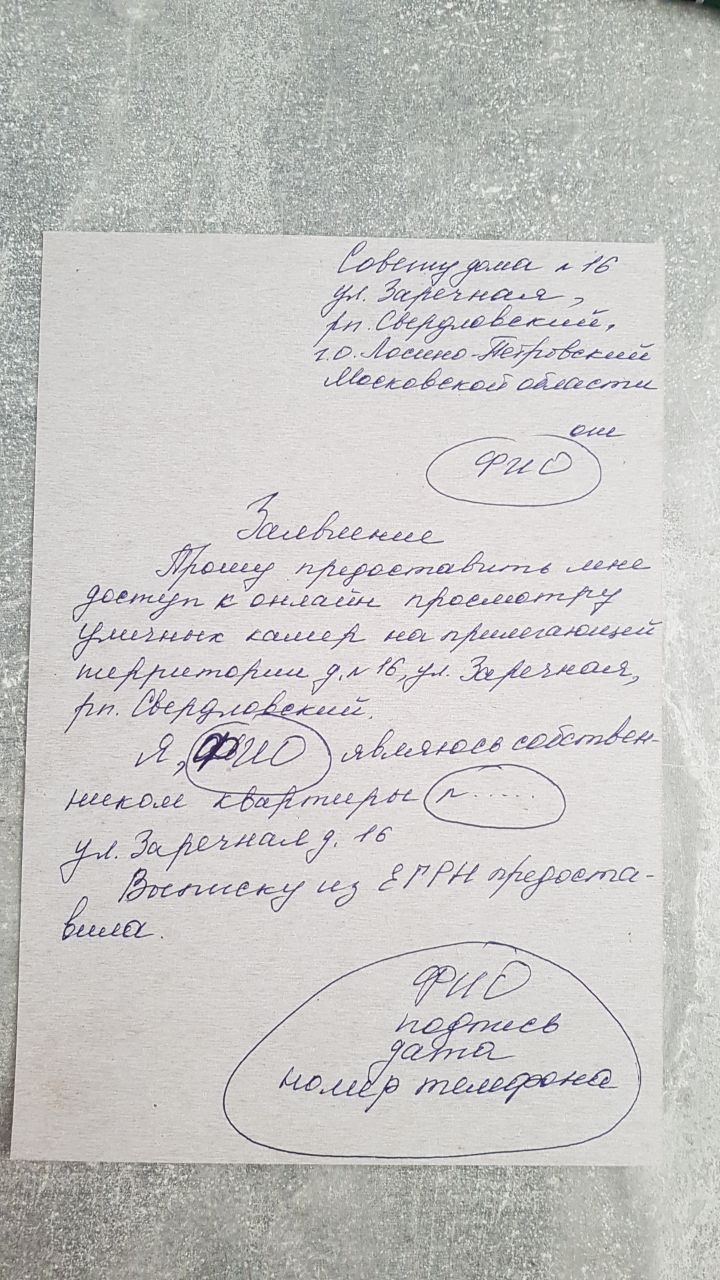 Совету дома № 16
ул. Заречная,
рп. Свердловский,
г.о. Лосино-Петровский
Московской области
от
ФИО
Заявление
Прошу предоставить мне
доступ к онлайн просмотру
уличных камер на прилегающей
территории д. № 16, ул. Заречная,
рп. Свердловский.
Я, ФИО являюсь собствен-
ником квартиры № .....
ул. Заречная д. 16
Выписку из ЕГРН предоста-
вила.
ФИО
подпись
дата
номер телефона